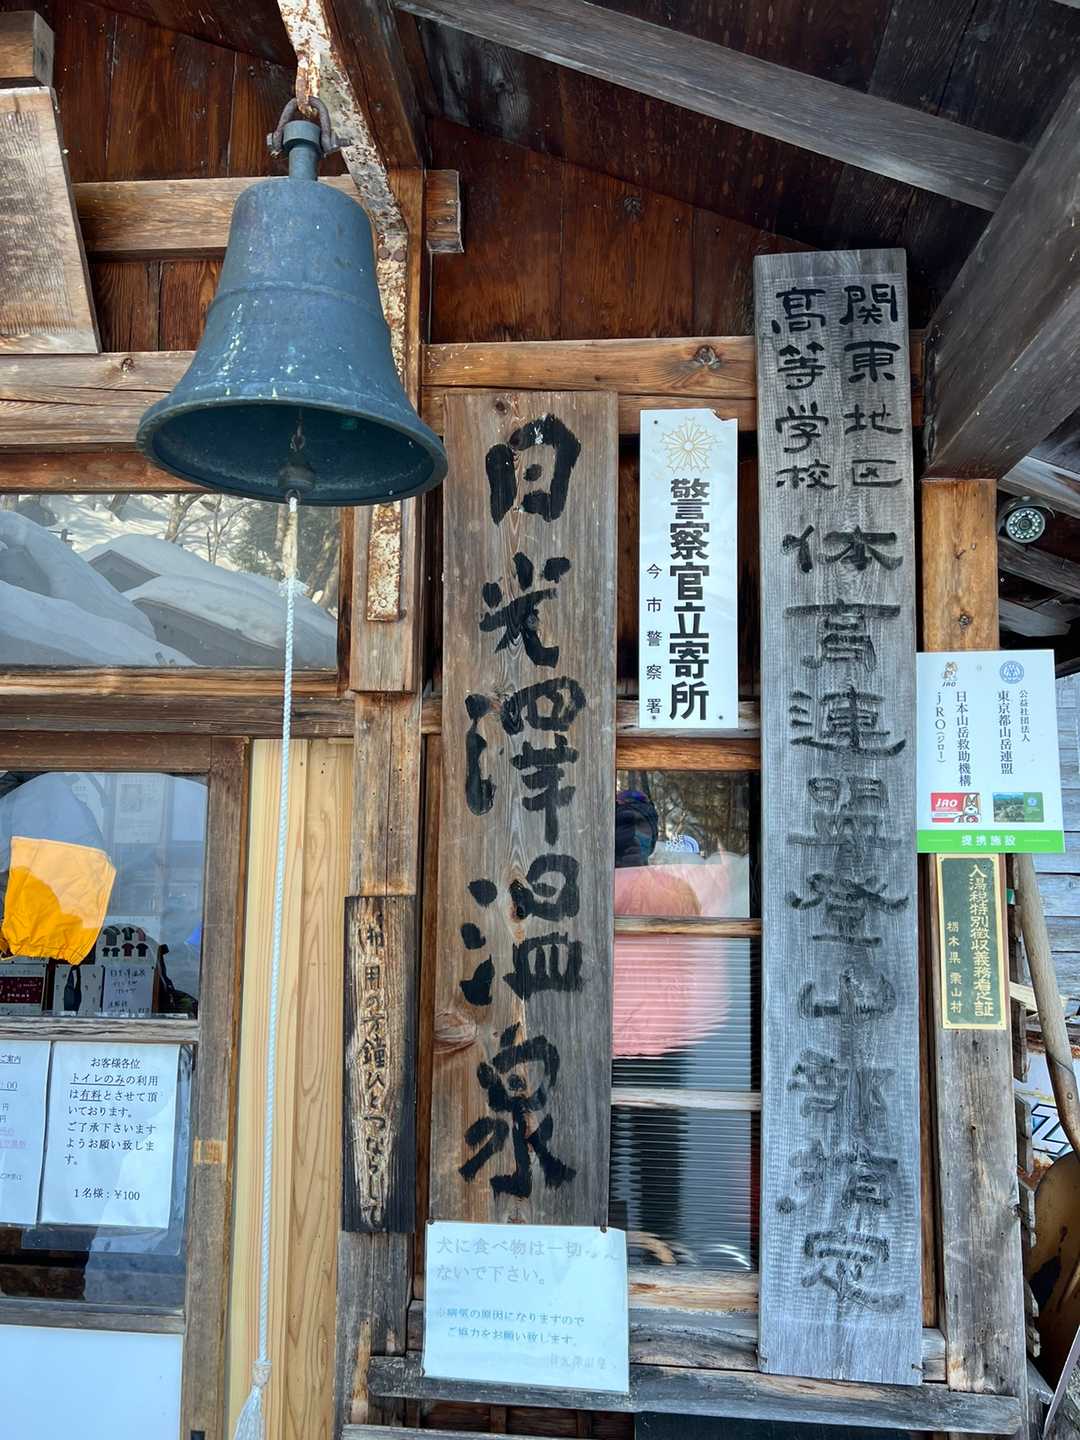 日光澤温泉
警察官立寄所
今市警察署
関東地区
高等学校
体育連盟登山部指定
公益社団法人
東京都山岳連盟
日本山岳救助機構
jRO(ジロー)
jRO
jRO
提携施設
入湯税特別徴収義務者之証
栃木県 栗山村
御用の方鐘ひとつならして
お客様各位
トイレのみの利用
は有料とさせて頂
いております。
ご了承下さいます
ようお願い致しま
す。
1名様:¥100
犬に食べ物は一切
ないで下さい。
※病気の原因になりますので
ご協力をお願い致します。